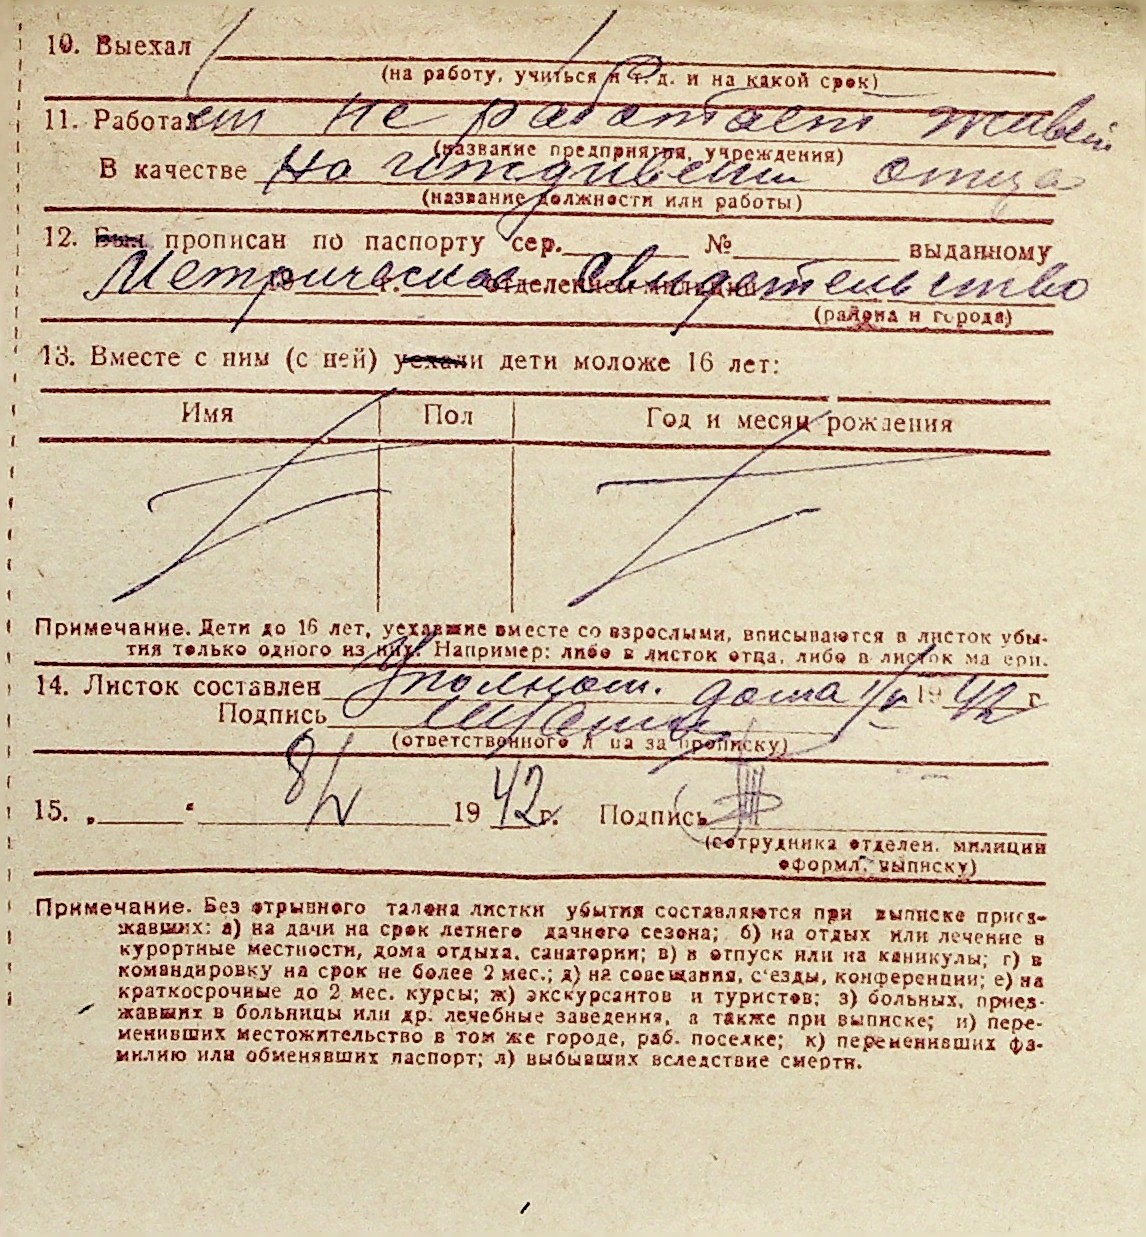 10. Выехал
(на работу, учиться и т. д. и на какой срок)
11. Работает не работает живет
(название предприятия, учреждения)
В качестве на иждивении отца
(название должности или работы)
12. Был прописан по паспорту сер. № выданному
Метрическое свидетельство
г. отделением милиции
(района и города)
13. Вместе с ним (с ней) уехали дети моложе 16 лет:
Имя Пол Год и месяц рождения
Примечание. Дети до 16 лет, уехавшие вместе со взрослыми, вписываются в листок убы-
тия только одного из них. Например: либо в листок отца, либо в листок ма ери.
14. Листок составлен Уполном. дома 1/V 1942 г
Подпись
(ответственного л ца за прописку)
15. „ “ 8/V 1942 г. Подпись
(сотрудника отделен. милиции
оформл. выписку)
Примечание. Без отрывного талона листки убытия составляются при выписке приез-
жавших: а) на дачи на срок летнего дачного сезона; б) на отдых или лечение в
курортные местности, дома отдыха, санатории; в) в отпуск или на каникулы; г) в
командировку на срок не более 2 мес.; д) на совещания, с'езды, конференции; е) на
краткосрочные до 2 мес. курсы; ж) экскурсантов и туристов; з) больных, приез-
жавших в больницы или др. лечебные заведения, а также при выписке; и) пере-
менивших местожительство в том же городе, раб. поселке; к) переменивших фа-
милию или обменявших паспорт; л) выбывших вследствие смерти.